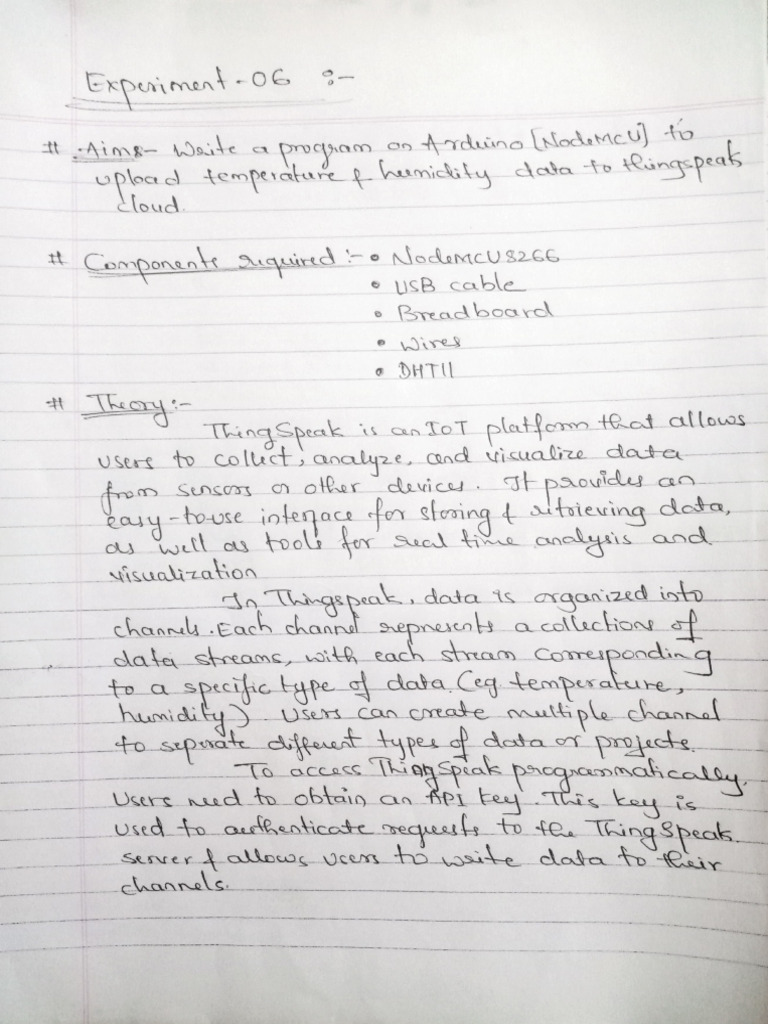 Experiment-06 :-
# Aim:- Write a program on Arduino [NodeMCU] to
upload temperature & humidity data to thingspeak
cloud.
# Components required :- • NodeMCU8266
• USB cable
• Breadboard
• Wires
• DHT11
# Theory:-
ThingSpeak is an IoT platform that allows
users to collect, analyze, and visualize data
from sensors or other devices. It provides an
easy-to-use interface for storing & retrieving data,
as well as tools for real time analysis and
visualization
In Thingspeak, data is organized into
channels. Each channel represents a collections of
data streams, with each stream corresponding
to a specific type of data (eg. temperature,
humidity). Users can create multiple channel
to seperate different types of data or projects.
To access ThingSpeak programmatically,
Users need to obtain an API key. This key is
used to authenticate requests to the ThingSpeak.
server & allows users to write data to their
channels.